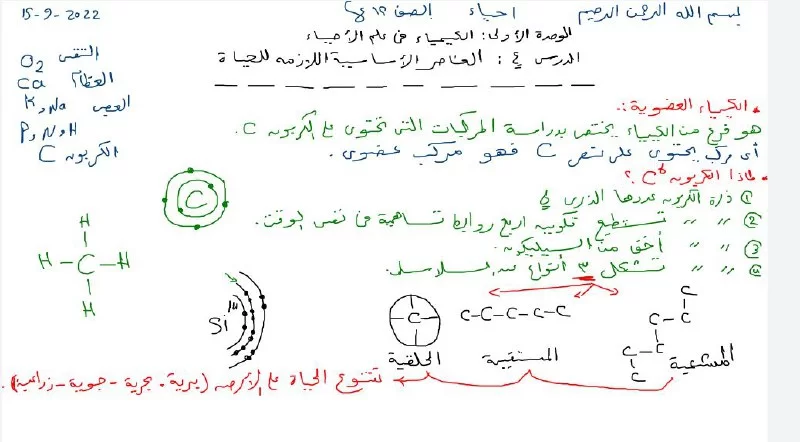 بسم الله الرحمن الرحيم
احياء الصف ١٢
15-9-2022
الوحدة الأولى: الكيمياء في علم الأحياء
الدرس ٤: العناصر الأساسية اللازمه للحياة
O2 التنفس
Ca العظام
K, Na العصب
P, N, O, H
C الكربون
الكيمياء العضوية:
هو فرع من الكيمياء يختص بدراسة المركبات التي تحتوي على الكربون C.
أي مركب يحتوي على عنصر C فهو مركب عضوي.
لماذا الكربون C6 ؟
① ذرة الكربون عددها الذري
② " " تستطيع تكوين اربع روابط تساهمية في نفس الوقت.
③ " " أخف من السيليكون.
④ " " تشكل ٣ أنواع من السلاسل.
C
H
H-C-H
H
Si 14
C
C-C-C-C-C
C
C-C
C-C
C
الحلقية
المستقيمة
المتشعبة
تتنوع الحياة على الأرض (برية - بحرية - جوية - زراعية).